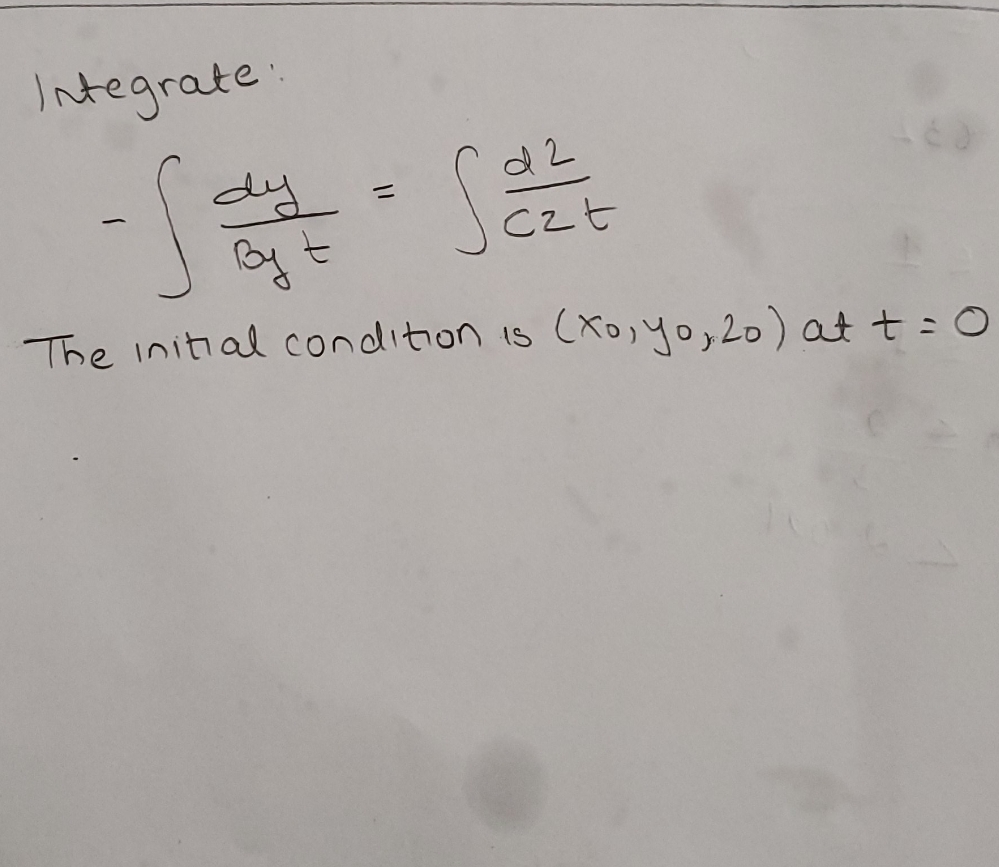 Integrate:
- ∫ dy/(By t) = ∫ dz/(Cz t)
The initial condition is (x0, y0, z0) at t = 0